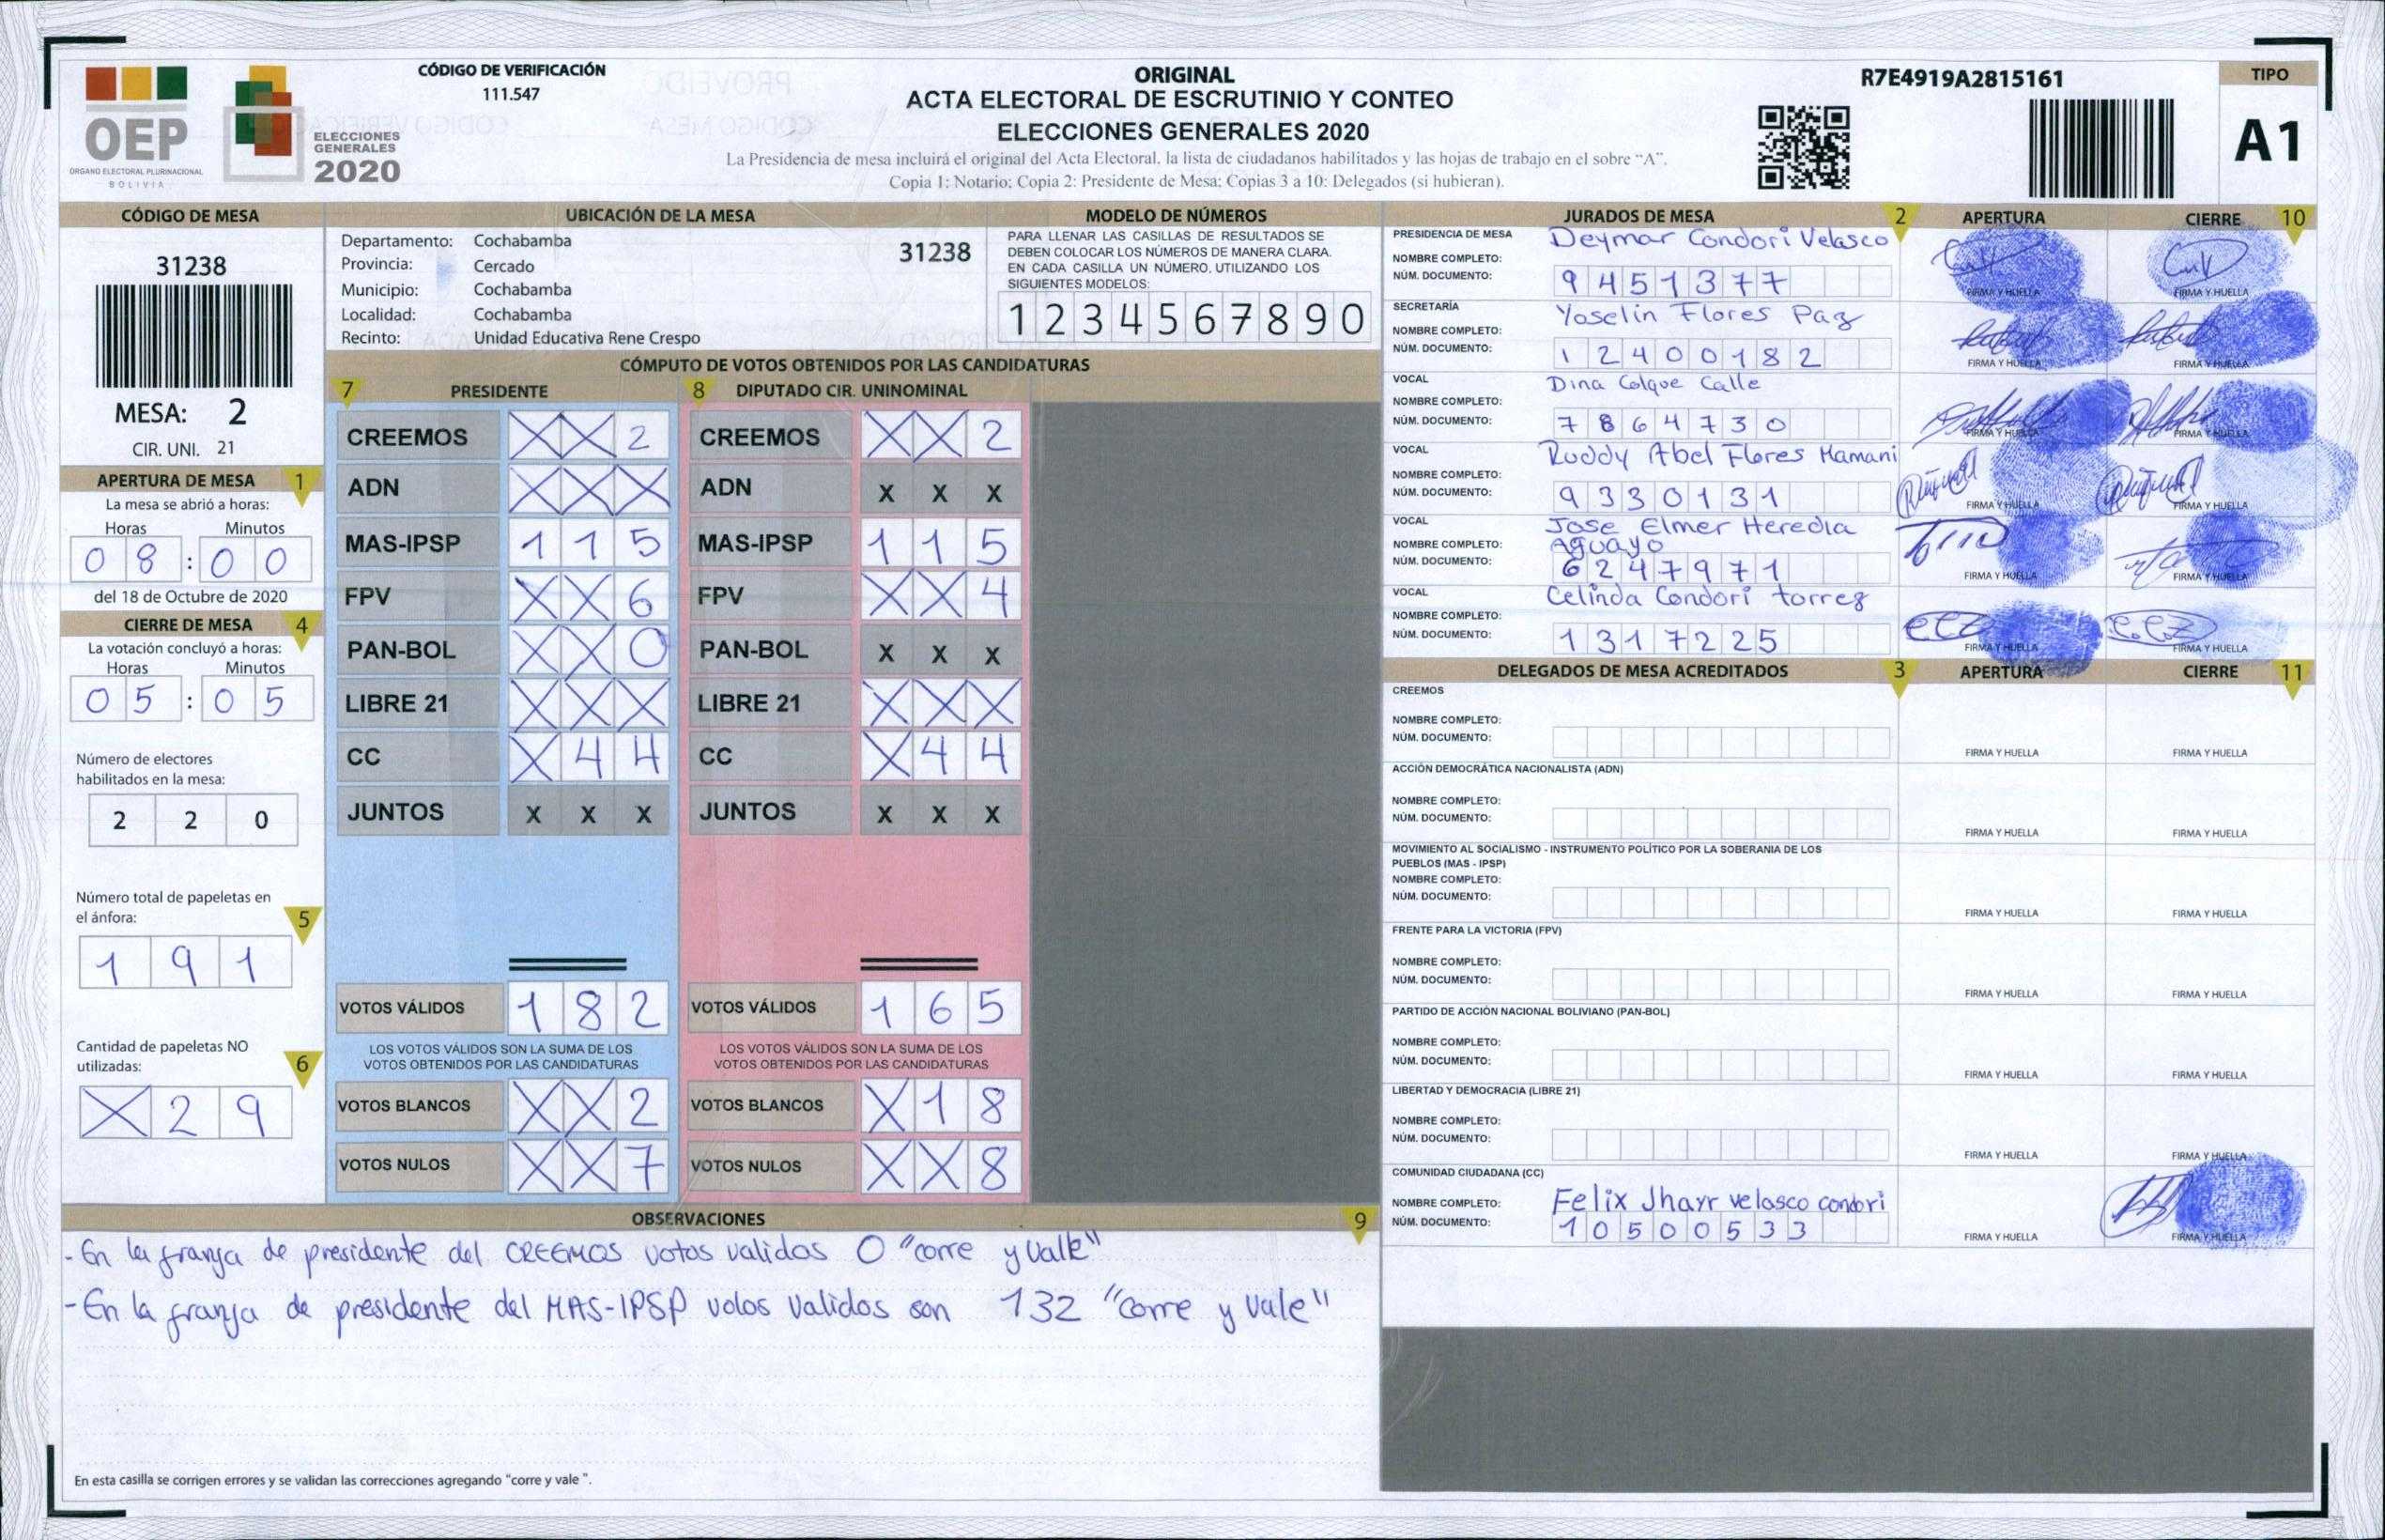 OEP
ORGANO ELECTORAL PLURINACIONAL
BOLIVIA
ELECCIONES
GENERALES
2020
CÓDIGO DE VERIFICACIÓN
111.547
ORIGINAL
ACTA ELECTORAL DE ESCRUTINIO Y CONTEO
ELECCIONES GENERALES 2020
La Presidencia de mesa incluirá el original del Acta Electoral, la lista de ciudadanos habilitados y las hojas de trabajo en el sobre "A".
Copia 1: Notario; Copia 2: Presidente de Mesa; Copias 3 a 10: Delegados (si hubieran).
R7E4919A2815161
TIPO
A1
CÓDIGO DE MESA
31238
MESA: 2
CIR. UNI. 21
UBICACIÓN DE LA MESA
Departamento: Cochabamba
Provincia: Cercado
Municipio: Cochabamba
Localidad: Cochabamba
Recinto: Unidad Educativa Rene Crespo
31238
MODELO DE NÚMEROS
PARA LLENAR LAS CASILLAS DE RESULTADOS SE
DEBEN COLOCAR LOS NÚMEROS DE MANERA CLARA.
EN CADA CASILLA UN NÚMERO. UTILIZANDO LOS
SIGUIENTES MODELOS:
1 2 3 4 5 6 7 8 9 0
APERTURA DE MESA 1
La mesa se abrió a horas:
Horas Minutos
0 8 : 0 0
del 18 de Octubre de 2020
CIERRE DE MESA 4
La votación concluyó a horas:
Horas Minutos
0 5 : 0 5
Número de electores
habilitados en la mesa:
2 2 0
Número total de papeletas en
el ánfora: 5
1 9 1
Cantidad de papeletas NO
utilizadas: 6
X 2 9
CÓMPUTO DE VOTOS OBTENIDOS POR LAS CANDIDATURAS
7 PRESIDENTE
CREEMOS X X 2
ADN X X X
MAS-IPSP 1 1 5
FPV X X 6
PAN-BOL X X 0
LIBRE 21 X X X
CC X 4 4
JUNTOS X X X
VOTOS VÁLIDOS 1 8 2
LOS VOTOS VÁLIDOS SON LA SUMA DE LOS
VOTOS OBTENIDOS POR LAS CANDIDATURAS
VOTOS BLANCOS X X 2
VOTOS NULOS X X 7
8 DIPUTADO CIR. UNINOMINAL
CREEMOS X X 2
ADN X X X
MAS-IPSP 1 1 5
FPV X X 4
PAN-BOL X X X
LIBRE 21 X X X
CC X 4 4
JUNTOS X X X
VOTOS VÁLIDOS 1 6 5
LOS VOTOS VÁLIDOS SON LA SUMA DE LOS
VOTOS OBTENIDOS POR LAS CANDIDATURAS
VOTOS BLANCOS X 1 8
VOTOS NULOS X X 8
OBSERVACIONES 9
- En la franja de presidente del CREEMOS votos validos 0 "corre y vale"
- En la franja de presidente del MAS-IPSP votos validos son 132 "corre y vale"
En esta casilla se corrigen errores y se validan las correcciones agregando "corre y vale ".
JURADOS DE MESA 2 APERTURA CIERRE 10
PRESIDENCIA DE MESA
NOMBRE COMPLETO: Deymar Condori Velasco
NÚM. DOCUMENTO: 9 4 5 1 3 7 7
FIRMA Y HUELLA FIRMA Y HUELLA
SECRETARÍA
NOMBRE COMPLETO: Yoselin Flores Paz
NÚM. DOCUMENTO: 1 2 4 0 0 1 8 2
FIRMA Y HUELLA FIRMA Y HUELLA
VOCAL
NOMBRE COMPLETO: Dina Colque Calle
NÚM. DOCUMENTO: 7 8 6 4 7 3 0
FIRMA Y HUELLA FIRMA Y HUELLA
VOCAL
NOMBRE COMPLETO: Ruddy Abel Flores Mamani
NÚM. DOCUMENTO: 9 3 3 0 1 3 1
FIRMA Y HUELLA FIRMA Y HUELLA
VOCAL
NOMBRE COMPLETO: Jose Elmer Heredia
Aguayo
NÚM. DOCUMENTO: 6 2 4 7 9 7 1
FIRMA Y HUELLA FIRMA Y HUELLA
VOCAL
NOMBRE COMPLETO: Celinda Condori torrez
NÚM. DOCUMENTO: 1 3 1 7 2 2 5
FIRMA Y HUELLA FIRMA Y HUELLA
DELEGADOS DE MESA ACREDITADOS 3 APERTURA CIERRE 11
CREEMOS
NOMBRE COMPLETO:
NÚM. DOCUMENTO:
FIRMA Y HUELLA FIRMA Y HUELLA
ACCIÓN DEMOCRÁTICA NACIONALISTA (ADN)
NOMBRE COMPLETO:
NÚM. DOCUMENTO:
FIRMA Y HUELLA FIRMA Y HUELLA
MOVIMIENTO AL SOCIALISMO - INSTRUMENTO POLÍTICO POR LA SOBERANIA DE LOS
PUEBLOS (MAS - IPSP)
NOMBRE COMPLETO:
NÚM. DOCUMENTO:
FIRMA Y HUELLA FIRMA Y HUELLA
FRENTE PARA LA VICTORIA (FPV)
NOMBRE COMPLETO:
NÚM. DOCUMENTO:
FIRMA Y HUELLA FIRMA Y HUELLA
PARTIDO DE ACCIÓN NACIONAL BOLIVIANO (PAN-BOL)
NOMBRE COMPLETO:
NÚM. DOCUMENTO:
FIRMA Y HUELLA FIRMA Y HUELLA
LIBERTAD Y DEMOCRACIA (LIBRE 21)
NOMBRE COMPLETO:
NÚM. DOCUMENTO:
FIRMA Y HUELLA FIRMA Y HUELLA
COMUNIDAD CIUDADANA (CC)
NOMBRE COMPLETO: Felix Jharr velasco condori
NÚM. DOCUMENTO: 1 0 5 0 0 5 3 3
FIRMA Y HUELLA FIRMA Y HUELLA